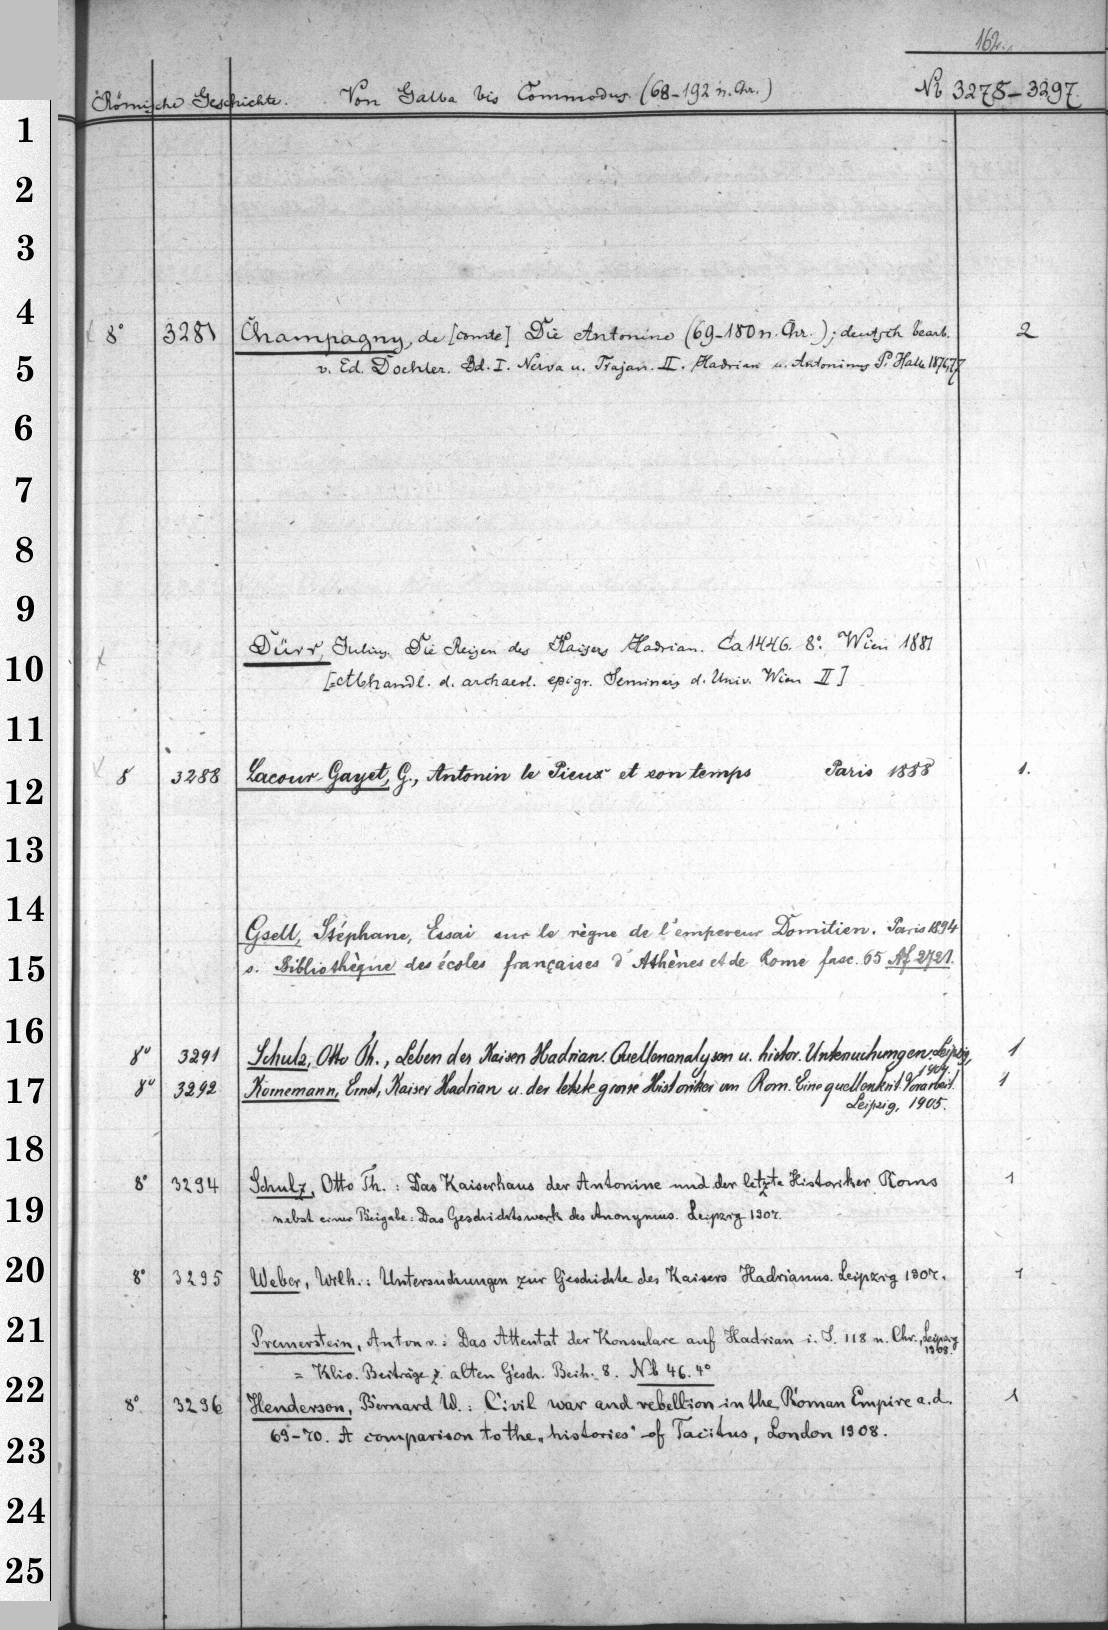 162.
Römische Geschichte. Von Galba bis Commodus. (68-192 n. Chr.) Nb 3278-3297.
1
2
3
4
8° 3281 Champagny, de [comte] Die Antonine (69-180 n. Chr.); deutsch bearb. 2
5
v. Ed. Doehler. Bd. I. Nerva u. Trajan. II. Hadrian u. Antoninus P. Halle 1876/77
6
7
8
9
Dürr, Julius. Die Reisen des Kaisers Hadrian. Ca 1446. 8°. Wien 1881
10
[=Abhandl. d. archaeol. epigr. Seminars d. Univ. Wien II]
11
8 3288 Lacour-Gayet, G., Antonin le Pieux et son temps Paris 1888 1.
12
13
14
Gsell, Stéphane, Essai sur le règne de l'empereur Domitien. Paris 1894
15
s. Bibliothèque des écoles françaises d'Athènes et de Rome fasc. 65 Af 2721.
16
8° 3291 Schulz, Otto Th., Leben des Kaisers Hadrian. Quellenanalysen u. histor. Untersuchungen. Leipzig, 1
1904.
17
8° 3292 Kornemann, Ernst, Kaiser Hadrian u. der letzte grosse Historiker von Rom. Eine quellenkrit. Vorarbeit. 1
Leipzig, 1905.
18
8° 3294 Schulz, Otto Th.: Das Kaiserhaus der Antonine und der letzte Historiker Roms 1
19
nebst einer Beigabe: Das Geschichtswerk des Anonymus. Leipzig 1907.
20
8° 3295 Weber, Wilh.: Untersuchungen zur Geschichte des Kaisers Hadrianus. Leipzig 1907. 1
21
Premerstein, Anton v.: Das Attentat der Konsulare auf Hadrian i. J. 118 n. Chr., Leipzig
1908.
= Klio. Beiträge z. alten Gesch. Beih. 8. Nb 46. 4°
22
8° 3296 Henderson, Bernard W.: Civil war and rebellion in the Roman Empire a.d. 1
23
69-70. A comparison to the „histories" of Tacitus, London 1908.
24
25